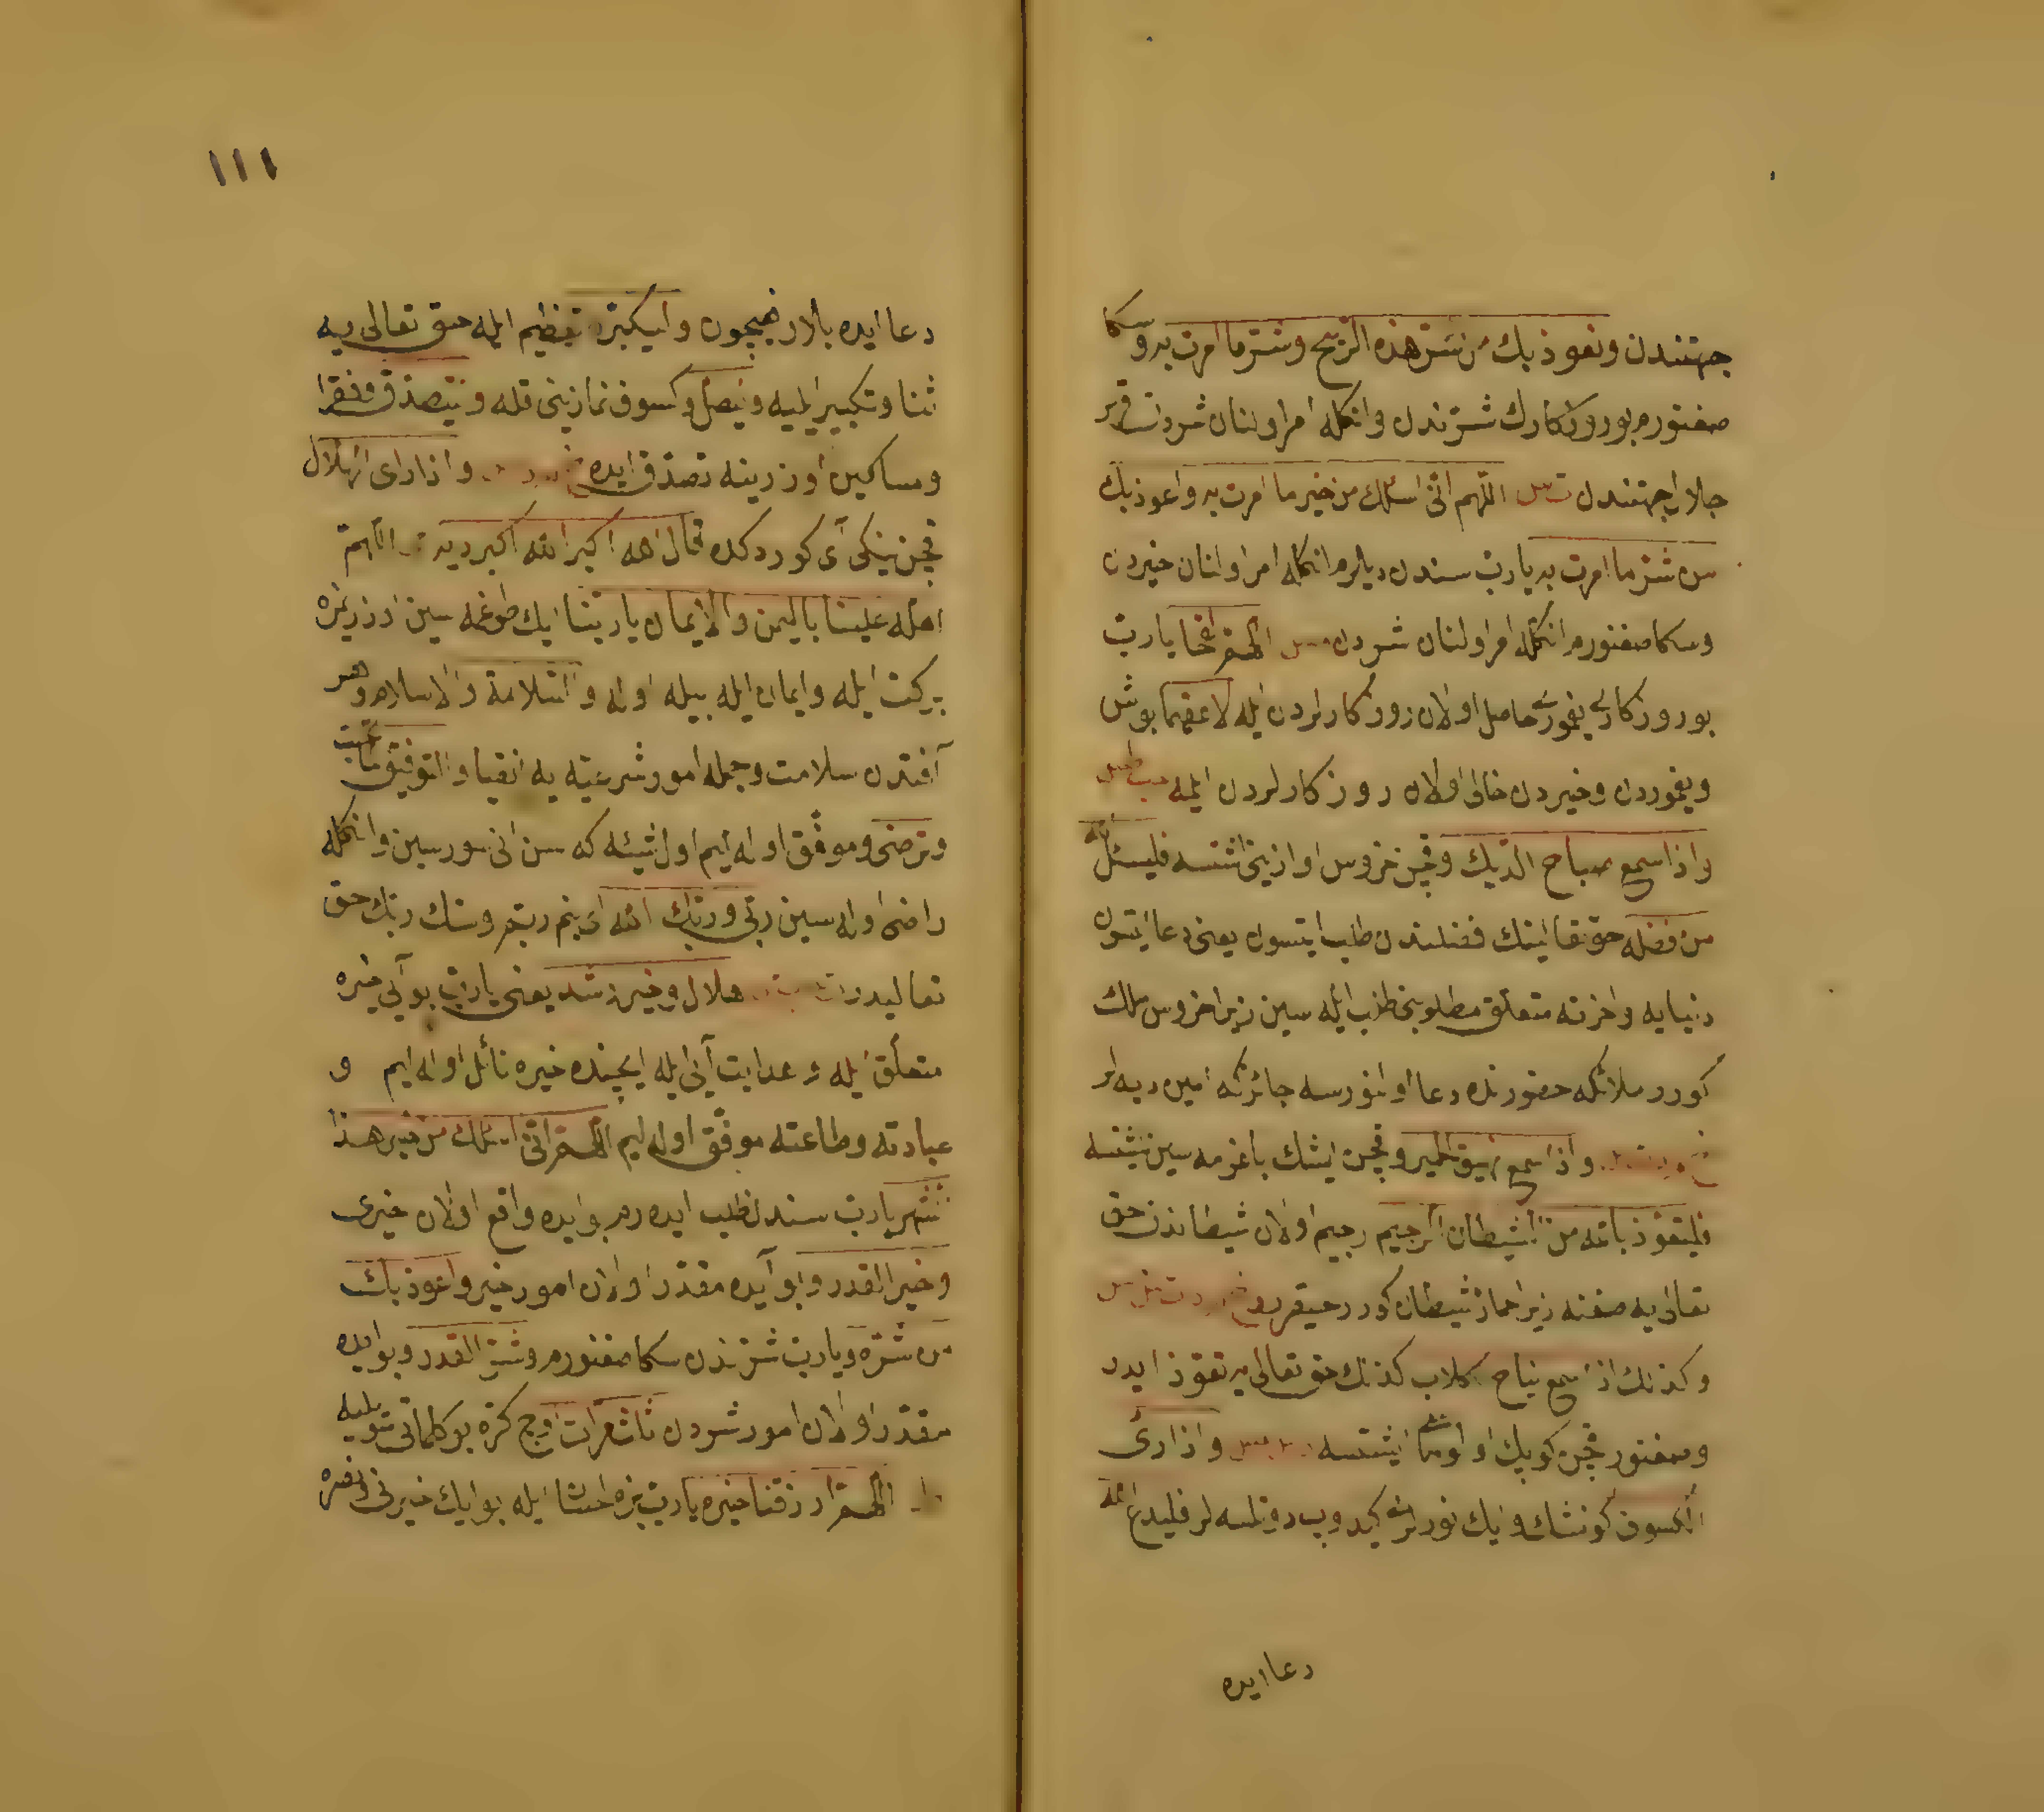 جهتندن ونعوذ بك من شر هذه الريح وشر ما امرت به وسكا
صغنورم بو روزكارك شرندن وانكله امر اولنان شردن
جهتندن اللهم انى اسئلك من خير ما امرت به واعوذ بك
من شر ما امرت به يا رب سندن ديلرم انكله امر اولنان خيردن
وسكا صغنورم انكله امر اولنان شردن اللهم لقحا يا رب
بو روزكارى يغمورى حامل اولان روزكارلردن ايله لا عقيما بوش
ويغموردن وخيردن خالى اولان روزكارلردن ايلمه
واذا سمع صياح الديك وقچن خروس اوازينى اشتسه فليسئل الله
من فضله حق تعالينك فضلندن طلب ايتسون يعنى دعا ايتسون
دنيايه واخرته متعلق مطلوبنى طلب ايله سين زيرا خروس ملك
كورر ملائكه حضورنده دعا اولنورسه جائزكه امين ديه لر
واذا سمع نهيق الحمير وقچن اشك باغرمه سين اشتسه
فليتعوذ بالله من الشيطان الرجيم رجيم اولان شيطاندن حق
تعالى يه صغنه زيرا حمار شيطان كورر
وكذلك اذا سمع نباح الكلاب كذلك حق تعالى يه تعوذ ايدر
وصغنور قچن كوپك اشتسه واذا رأى
الكسوف كونشك وايك نورلرى كيدوب دوتلسه لر فليدع الله
دعا ايده
١١١
دعا ايده وليكبر تعظيم ايله حق تعالى يه
ثنا وتكبير ايليه وليصل وكسوف نمازينى قله وليتصدق وفقرا
ومساكين اوزرينه تصدق ايده واذا رأى الهلال
قچن يكى آى كوردكده قال الله اكبر الله اكبر ديه اللهم
اهله علينا باليمن والايمان يا ربنا ايك طوغمه سين اوزريمزه
بركت ايله وايمان ايله بيله اوله والسلامة والاسلام وهر
آفتدن سلامت وجمله امور شرعيه يه انقياد والتوفيق لما تحب
وترضى وموفق اوله ليم اول شيئه كه سن انى سورسين وانكله
راضى اوله سين ربى وربك الله اى بنم ربم وسنك ربك حق
تعاليدر هلال خير ورشد يعنى يا رب بو آيى خيره
متعلق ايله وهدايت آيى ايله ايچنده خيره نائل اوله ليم و
عبادته وطاعته موفق اوله ليم اللهم انى اسئلك من خير هذا
الشهر يا رب سندن طلب ايده رم بو ايده واقع اولان خيرى
وخير القدر وبو آيده مقدر اولان امور خير واعوذ بك
من شره ويا رب شرندن سكا صغنورم وشر القدر وبو ايده
مقدر اولان امور شردن ثلث مرات اوچ كره بو كلماتى سويليه
اللهم ارزقنا خيره يا رب بزه احسان ايله بو ايك خيرنى ونصره